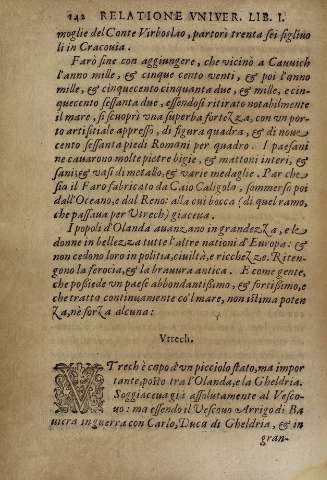 142 RELATIONE VNIVER. LIB. I.
moglie del Conte Virboslao, partorì trenta sei figliuo
li in Cracouia.
Farò fine con aggiungere, che vicino a Catuuich
l'anno mille, & cinque cento venti, & poi l'anno
mille, & cinquecento cinquanta due, & mille, e cin-
quecento sessanta due, essendosi ritirato notabilmente
il mare, si scuoprì vna superba fortezza, con vn por-
to artifitiale appresso, di figura quadra, & di noue
cento sessanta piedi Romani per quadro. I paesani
ne cauarono molte pietre bigie, & mattoni interi, &
sani, & vasi di metallo, & varie medaglie. Par che
sia il Faro fabricato da Caio Caligola, sommerso poi
dall'Oceano, e dal Reno: alla cui bocca (di quel ramo,
che passaua per Vtrech) giaceua.
I popoli d'Olanda auanzano in grandezza, e le
donne in bellezza tutte l'altre nationi d'Europa: &
non cedono loro in politia, ciuiltà, e ricchezze. Riten-
gono la ferocia, & la brauura antica. E come gente,
che possiede vn paese abbondantissimo, & fortissimo, e
che tratta continuamente co'l mare, non istima poten
za, nè forza alcuna:
Vtrech.
VTrech è capo d'vn picciolo stato, ma impor
tante, posto tra l'Olanda, e la Gheldria.
Soggiaceua già assolutamente al Vesco-
uo: ma essendo il Vescouo Arrigo di Ba
uiera in guerra con Carlo, Duca di Gheldria, & in
gran-